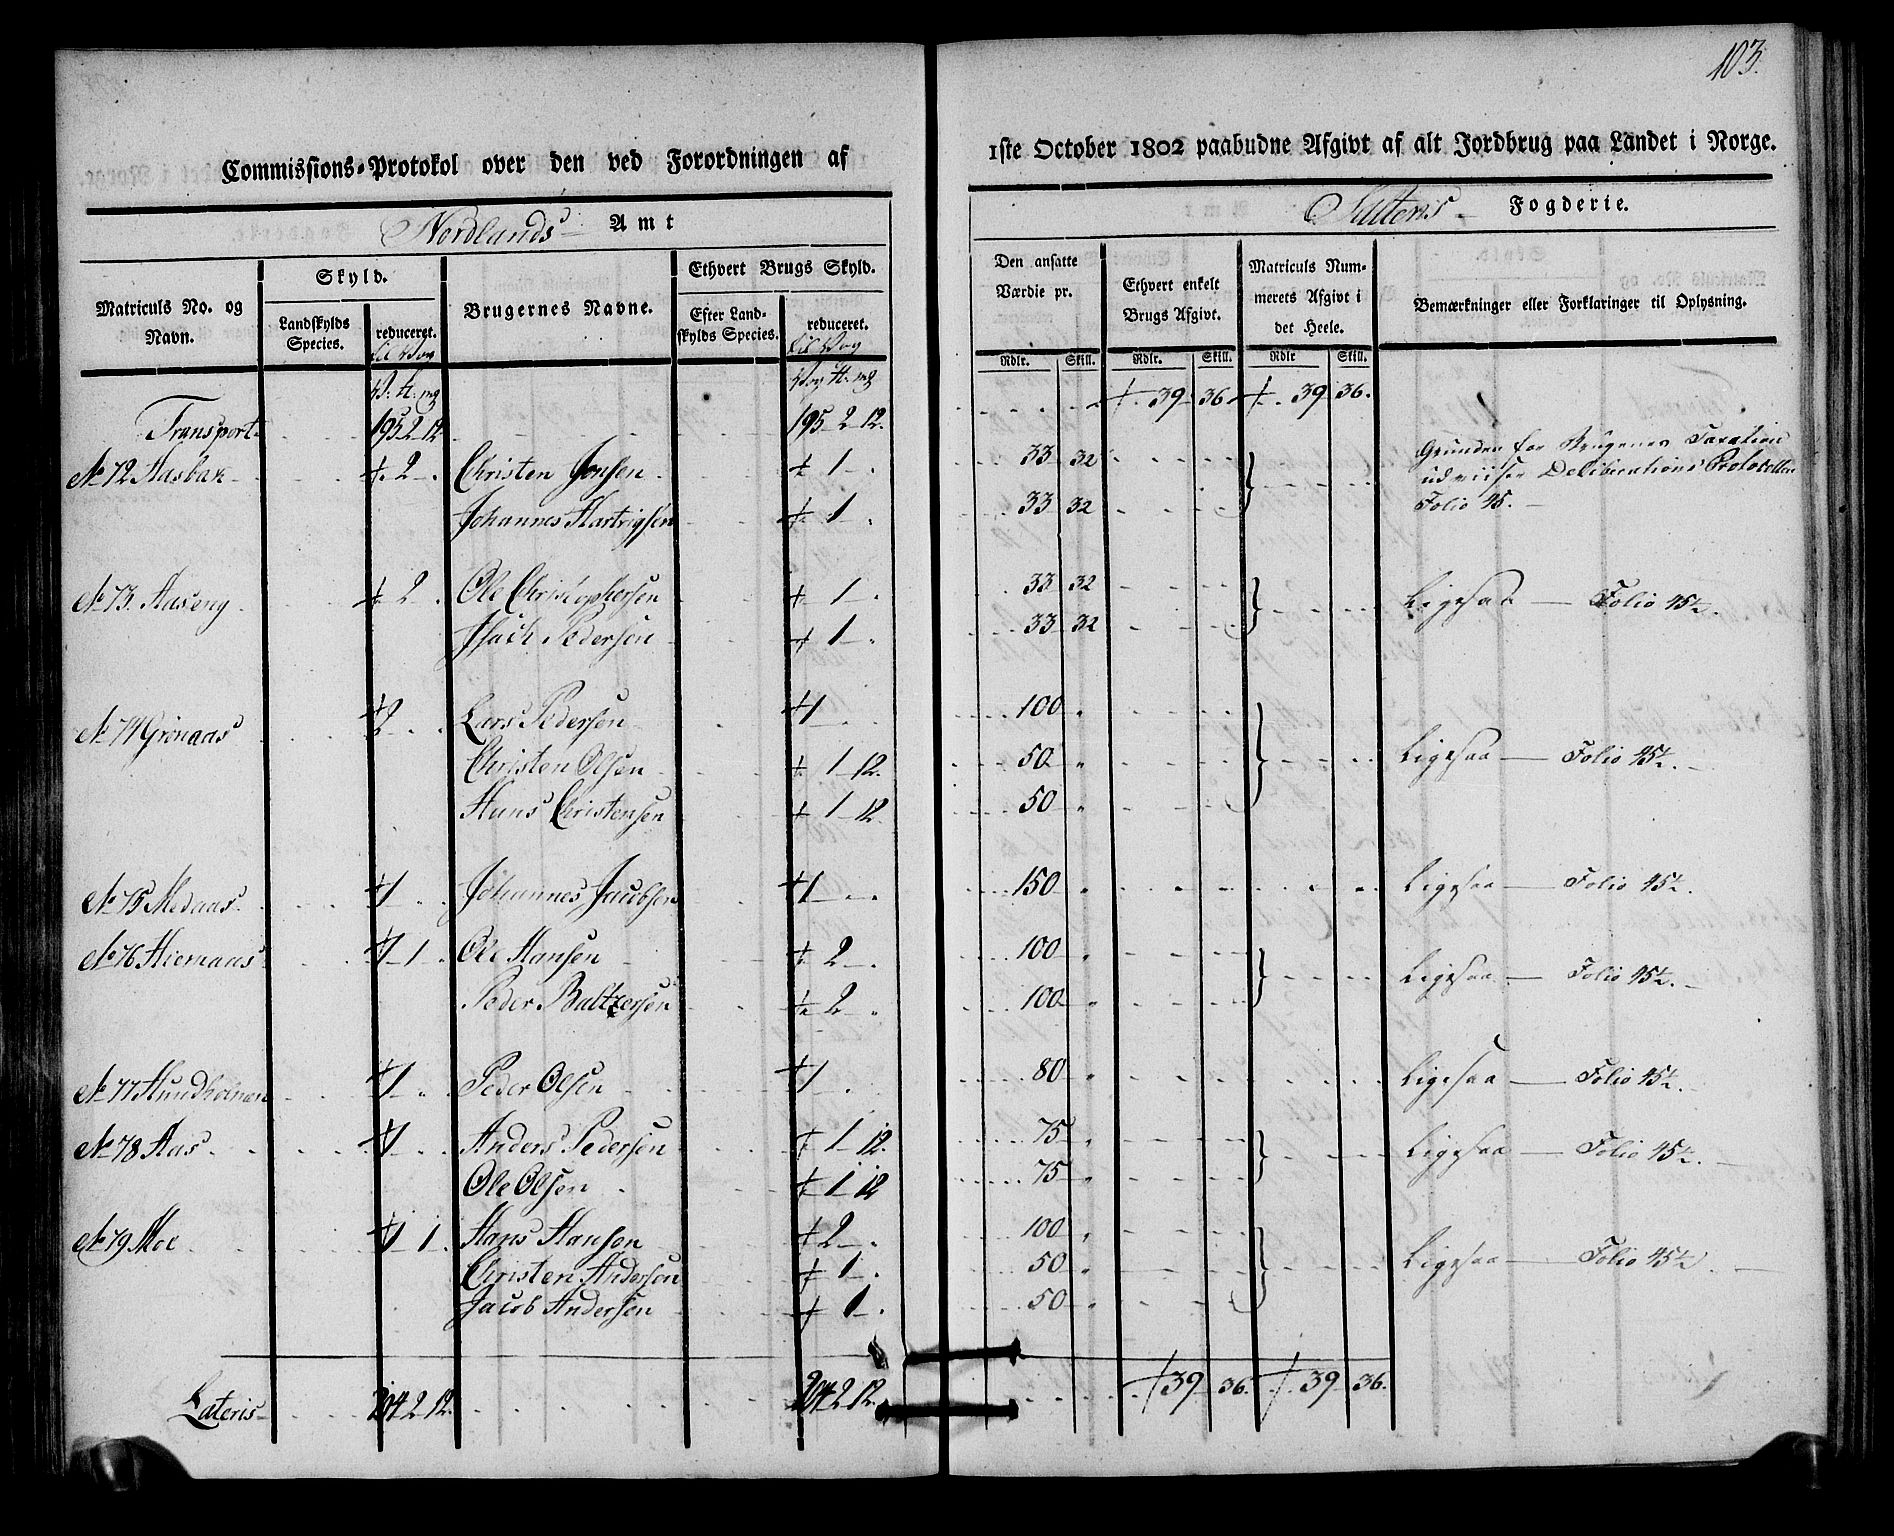 103.
Commissions-Protokol over den ved Forordningen af 1ste October 1802 paabudne Afgivt af alt Jordbrug paa Landet i Norge.
Nordlands Amt
Saltens Fogderie.
Matriculs No. og Navn.
Skyld.
Landskylds Species.
reduceret.
til Vog
V. #. mg
Brugernes Navne.
Ethvert Brugs Skyld.
Efter Landskylds Species.
reduceret.
til Vog
Vog #. mg
Den ansatte Værdie pr.
Rdlr. Skill.
Ethvert enkelt Brugs Afgivt.
Rdlr. Skill.
Matriculs Nummerets Afgivt i det Heele.
Rdlr Skill.
Bemærkninger eller Forklaringer til Oplysning.
Transport 195 2 12. 195 2 12. 39 36 39 36.
No 72 Aasbak 2 Christen Jensen 1 33 32 Grunden for Brugenes Taxation
udviiser Deliberations Protokollen
Johannes Hartvigsen 1 33 32 Folio 45.
No 73. Aaseng 2 Ole Christophersen 1 33 32 Ligesaa Folio 45½.
Isach Pedersen 1 33 32
No 74 Grønaas 2 Lars Pedersen 1 100
Christen Olsen 1 12. 50 Ligesaa Folio 45½.
Hans Christensen 1 12 50
No 75 Medaas 1 Johannes Jacobsen 1 150 Ligesaa Folio 45½.
No 76 Hiemaas 1 1 Ole Hansen 2 100 Ligesaa Folio 45½.
Peder Baltzersen 2 100
No 77 Hundholmen 1 Peder Olsen 1 80 Ligesaa Folio 45½.
No 78 Aas 1 Anders Pedersen 1 12. 75 Ligesaa Folio 45½.
Ole Olsen 1 12 75
No 79 Moe 1 1 Hans Hansen 2 100
Christen Andersen 1 50 Ligesaa Folio 45½.
Jacob Andersen 1 50
Lateris 204 2 12. 204 2 12. 39 36. 39 36.